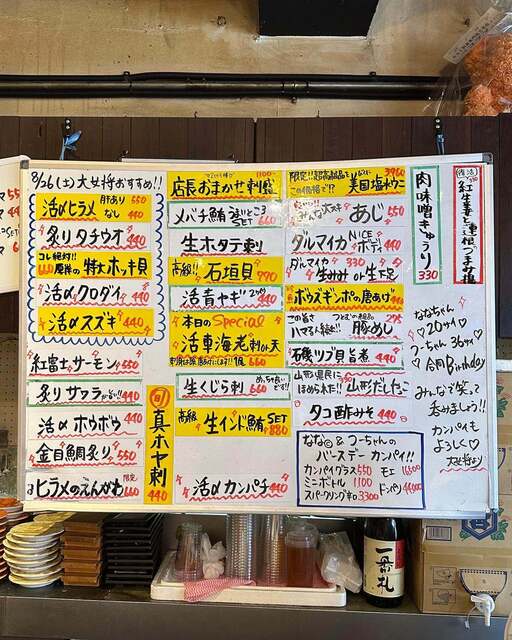 8/26(土)大女将おすすめ!!
活〆ヒラメ 肝あり 550
なし 440
炙りタチウオ 440
コレ絶好!!
660 厚岸の特大ホッキ貝
活〆クロダイ 440
活〆スズキ 440
紅富士サーモン 550
炙りサワラ 440
活〆ホウボウ 440
金目鯛炙り 550
ヒラメのえんがわ 限定 660
真ホヤ刺 440
1100
店長おまかせ刺盛
メバチ鮪 SET 660
生ホタテ刺 440
高級!! 石垣貝 770
活青ヤギ 440
本日のSpecial
活車海老刺か天
生くじら刺 660
高級 生インド鮪SET 880
活〆カンパチ 440
3960
この価格で!? 美国塩水ウニ
みんな大好き あじ 550
ダルマイカ NICE ボディ 440
ダルマイカ 330
生みみ or 生下足
ボウズギンポの唐あげ
この旨さ
豚めし
440
磯ツブ貝旨煮 440
山形県民に
ほめられた!! 山形だしたこ
タコ酢みそ 440
なな©&つーちゃんの
バースデーカンパイ!!
カンパイグラス 550
ミニボトル 1100
スパークリング 3300
モエ 16500
ドンペリ 44000
肉味噌きゅうり 330
復活
紅生姜と蓮根つまみ揚
ななちゃん
♡20サイ♡
つーちゃん36サイ
♡合同Birthday
みんなで笑って
呑みましょう!!
カンパイも
よろしく♡
大女将より
一番札